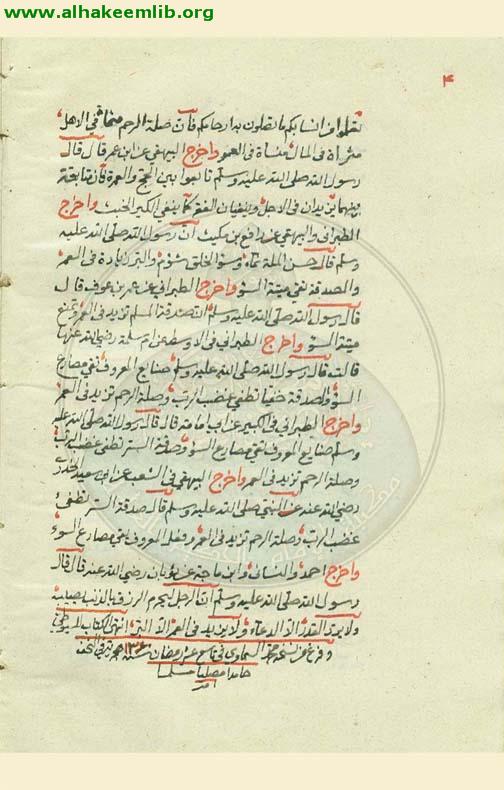 www.alhakeemlib.org
٤
تعلموا من انسابكم ما تصلون به ارحامكم فان صلة الرحم محبة في الاهل
مثراة في المال منساة في العمر واخرج البيهقي عن ابن عمر قال قال
رسول الله صلى الله عليه وسلم تابعوا بين الحج والعمرة فان متابعة
بينهما يزيدان في الاجل وينفيان الفقر كما ينفي الكير الخبث واخرج
الطبراني والبيهقي عن رافع بن مكيث ان رسول الله صلى الله عليه
وسلم قال حسن الملكة نماء وسوء الخلق شؤم والبر زيادة في العمر
والصدقة تقي ميتة السوء واخرج الطبراني عن عمر بن عوف قال
قال رسول الله صلى الله عليه وسلم ان صدقة المسلم تزيد في العمر وتمنع
ميتة السوء واخرج الطبراني في الاوسط عن ام سلمة رضي الله عنها
قالت قال رسول الله صلى الله عليه وسلم صنايع المعروف تقي مصارع
السوء والصدقة خفيا تطفي غضب الرب وصلة الرحم تزيد في العمر
واخرج الطبراني في الكبير عن ابي امامة قال قال رسول الله صلى الله عليه
وسلم صنايع المعروف تقي مصارع السوء وصدقة السر تطفي غضب الرب
وصلة الرحم تزيد في العمر واخرج البيهقي في الشعب عن ابي سعيد الخدري
رضي الله عنه عن النبي صلى الله عليه وسلم قال صدقة السر تطفي
غضب الرب وصلة الرحم تزيد في العمر وفعل المعروف يقي مصارع السوء
واخرج احمد والنسائي وابن ماجة عن ثوبان رضي الله عنه قال قال
رسول الله صلى الله عليه وسلم ان الرجل ليحرم الرزق بالذنب يصيبه
ولا يرد القدر الا الدعاء ولا يزيد في العمر الا البر انتهى الكتاب للسيوطي
وفرغ من نسخه محمد السماوي في تاسع عشر رمضان سنة في النجف
حامدا مصليا مسلما